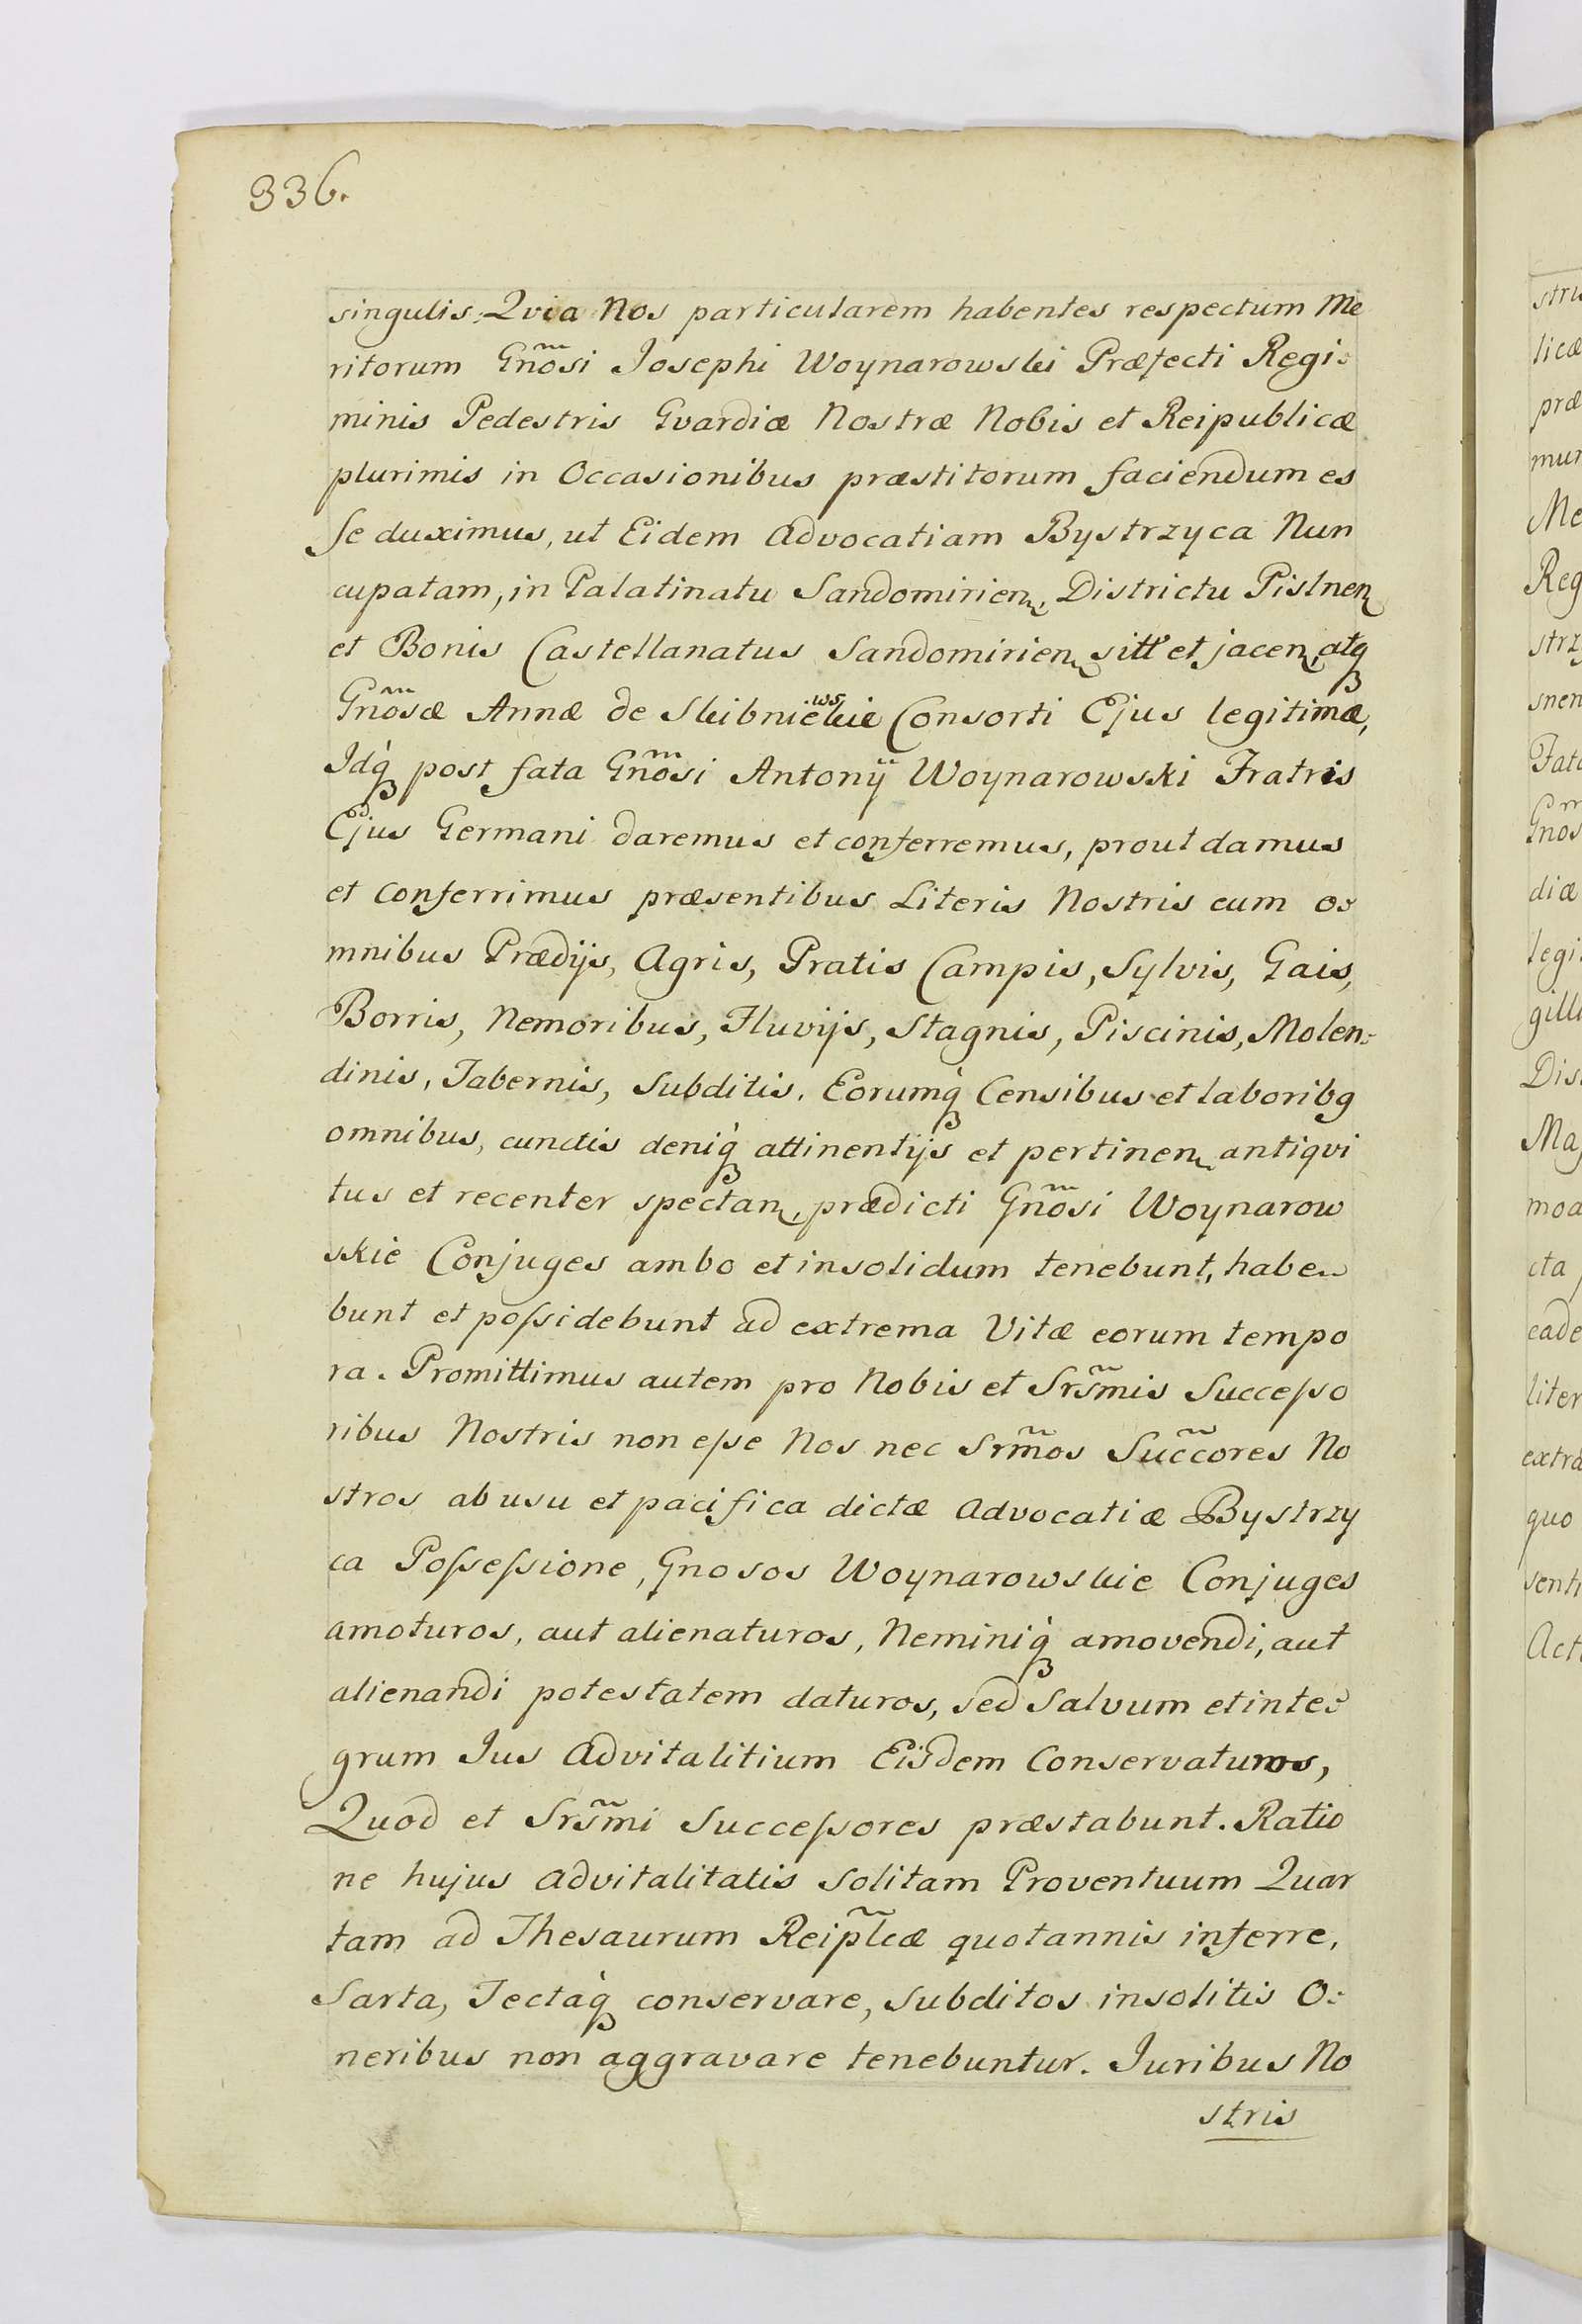 336.
singulis; Qvia Nos particularem habentes respectum Me
ritorum Gnosi Josephi Woynarowski Præfecti Regi-
minis Pedestris Gvardiæ Nostræ Nobis et Reipublicæ
plurimis in Occasionibus præstitorum faciendum es
se duximus, ut Eidem Advocatiam Bystrzyca Nun
cupatam, in Palatinatu Sandomirien, Districtu Pislnen
et Bonis Castellanatus Sandomirien sitt et jacen, atq
Gnosæ Annæ de Skibniewskie Consorti Ejus legitimæ,
Idq post fata Gnosi Antonij Woynarowski Fratris
Ejus Germani daremus et conferremus, prout damus
et conferrimus præsentibus Literis Nostris cum o-
mnibus Prædijs, Agris, Pratis Campis, Sylvis, Gais,
Borris, Nemoribus, Fluvijs, Stagnis, Piscinis, Molen-
dinis, Tabernis, Subditis, Eorumq Censibus et laboribg
omnibus, cunctis deniq attinentijs et pertinen antiqvi
tus et recenter spectan, prædicti Gnosi Woynarow
skie Conjuges ambo et insolidum tenebunt, habe-
bunt et possidebunt ad extrema Vitæ eorum tempo
ra. Promittimus autem pro Nobis et Srsmis Successo
ribus Nostris non esse Nos nec Srmos Succores No
stros ab usu et pacifica dictæ Advocatiæ Bystrzy
ca Possessione, Gnosos Woynarowskie Conjuges
amoturos, aut alienaturos, Neminiq amovendi, aut
alienandi potestatem daturos, sed Salvum et inte-
grum Jus Advitalitium Eisdem Conservaturos,
Quod et Srsmi Successores præstabunt. Ratio
ne hujus Advitalitatis Solitam Proventuum Quar
tam ad Thesaurum Reiplcæ quotannis inferre,
Sarta, Tectaq conservare, Subditos insolitis O-
neribus non aggravare tenebuntur. Juribus No
stris